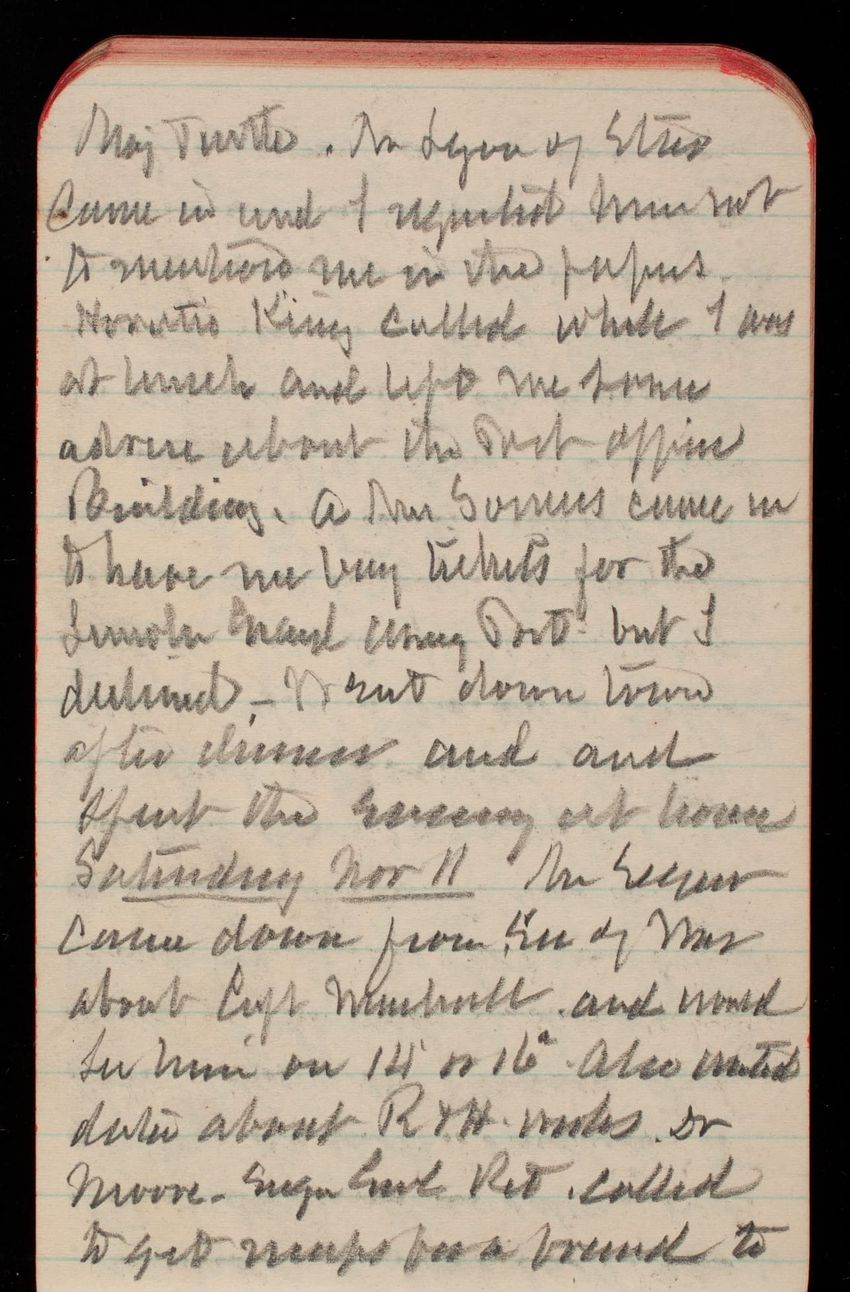 Maj Turtle. Mr of Star
Came in and I requested him not
to mention me in the papers.
Horatio King called while I was
at lunch and left me some
advice about the Post office
Building. A Mr Somers came in
to have me buy tickets for the
Lincoln Grand Army Post but I
declined - Went down town
after dinner and and
spent the Evening at home
Saturday Nov 11 Mr
came down from Sec of War
about Capt and would
see him on 14 or 16" Also wanted
data about R & H works. Dr
Moore - Surgn Genl Ret. called
to get maps for a friend to